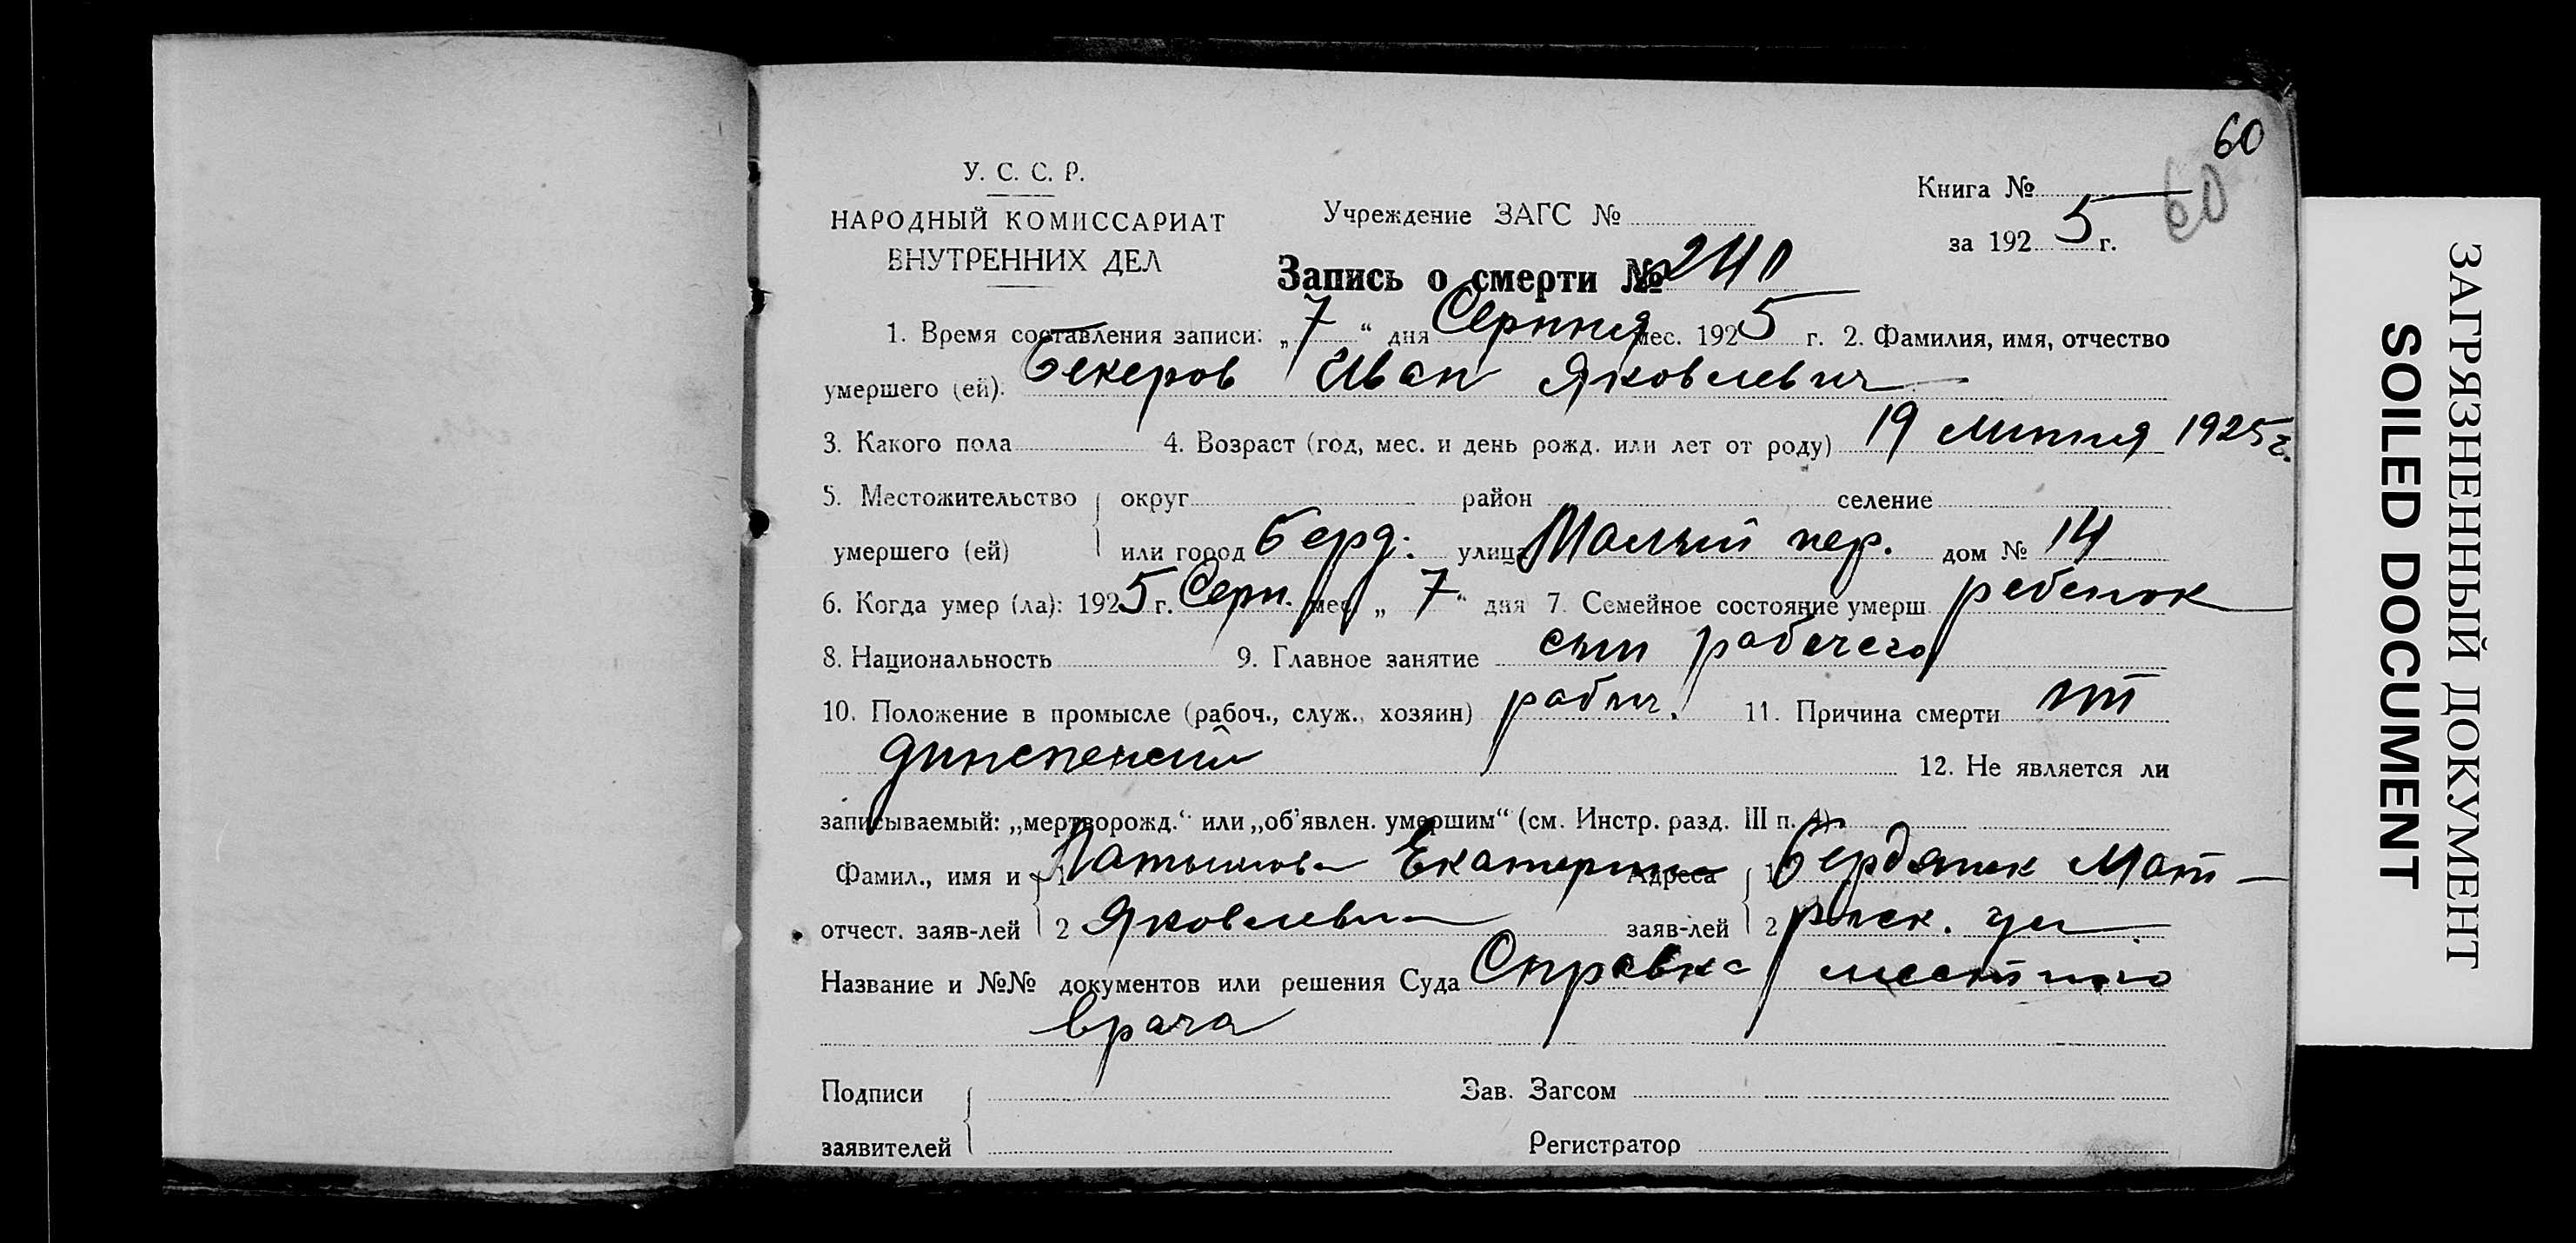 60
60
У. С. С. Р.
НАРОДНЫЙ КОМИССАРИАТ
ВНУТРЕННИХ ДЕЛ
Учреждение ЗАГС №
Книга №
за 1925 г.
Запись о смерти № 240
1. Время составления записи: „7“ дня Серпня мес. 1925 г. 2. Фамилия, имя, отчество
умершего (ей). Бекеров Иван Яковлевич
3. Какого пола 4. Возраст (год, мес. и день рожд. или лет от роду) 19 липня 1925 г.
5. Местожительство округ район селение
умершего (ей) или город Берд. улиц Малый пер. дом № 14
6. Когда умер (ла): 1925 г. Серп. мес. „7“ дня 7. Семейное состояние умерш ребенок
8. Национальность 9. Главное занятие сын рабочего
10. Положение в промысле (рабоч., служ., хозяин) рабоч. 11. Причина смерти
12. Не является ли
записываемый: „мертворожд.“ или „об'явлен. умершим“ (см. Инстр. разд. III п. 4)
Фамил., имя и 1 Екатерина Адреса 1 Бердянск
отчест. заяв-лей 2 Яковлевна заяв-лей 2 ул
Название и №№ документов или решения Суда Справка местного
врача
Подписи Зав. Загсом
заявителей Регистратор
ЗАГРЯЗНЕННЫЙ ДОКУМЕНТ
SOILED DOCUMENT